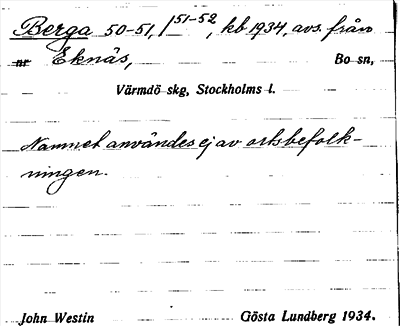 Berga 50-51, 1 51-52, kb 1934, avs. från
nr Eknäs, Bo sn,
Värmdö skg, Stockholms l.
Namnet användes ej av ortsbefolk-
ningen.
John Westin Gösta Lundberg 1934.